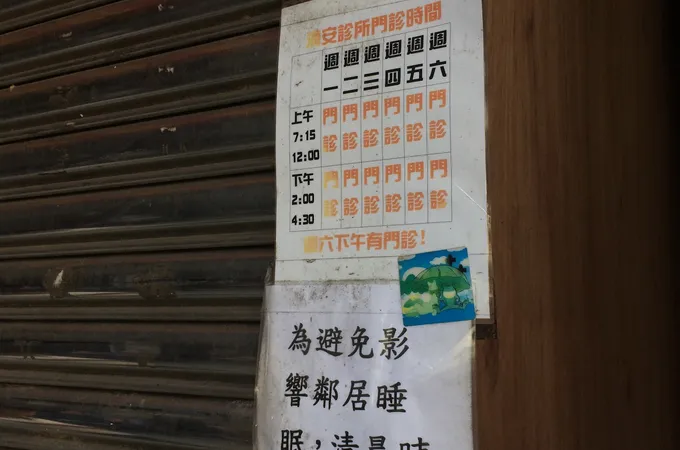 安診所門診時間
週一 週二 週三 週四 週五 週六
上午 7:15 12:00 門診 門診 門診 門診 門診 門診
下午 2:00 4:30 門診 門診 門診 門診 門診 門診
週六下午有門診!
為避免影
響鄰居睡
眠,清晨時